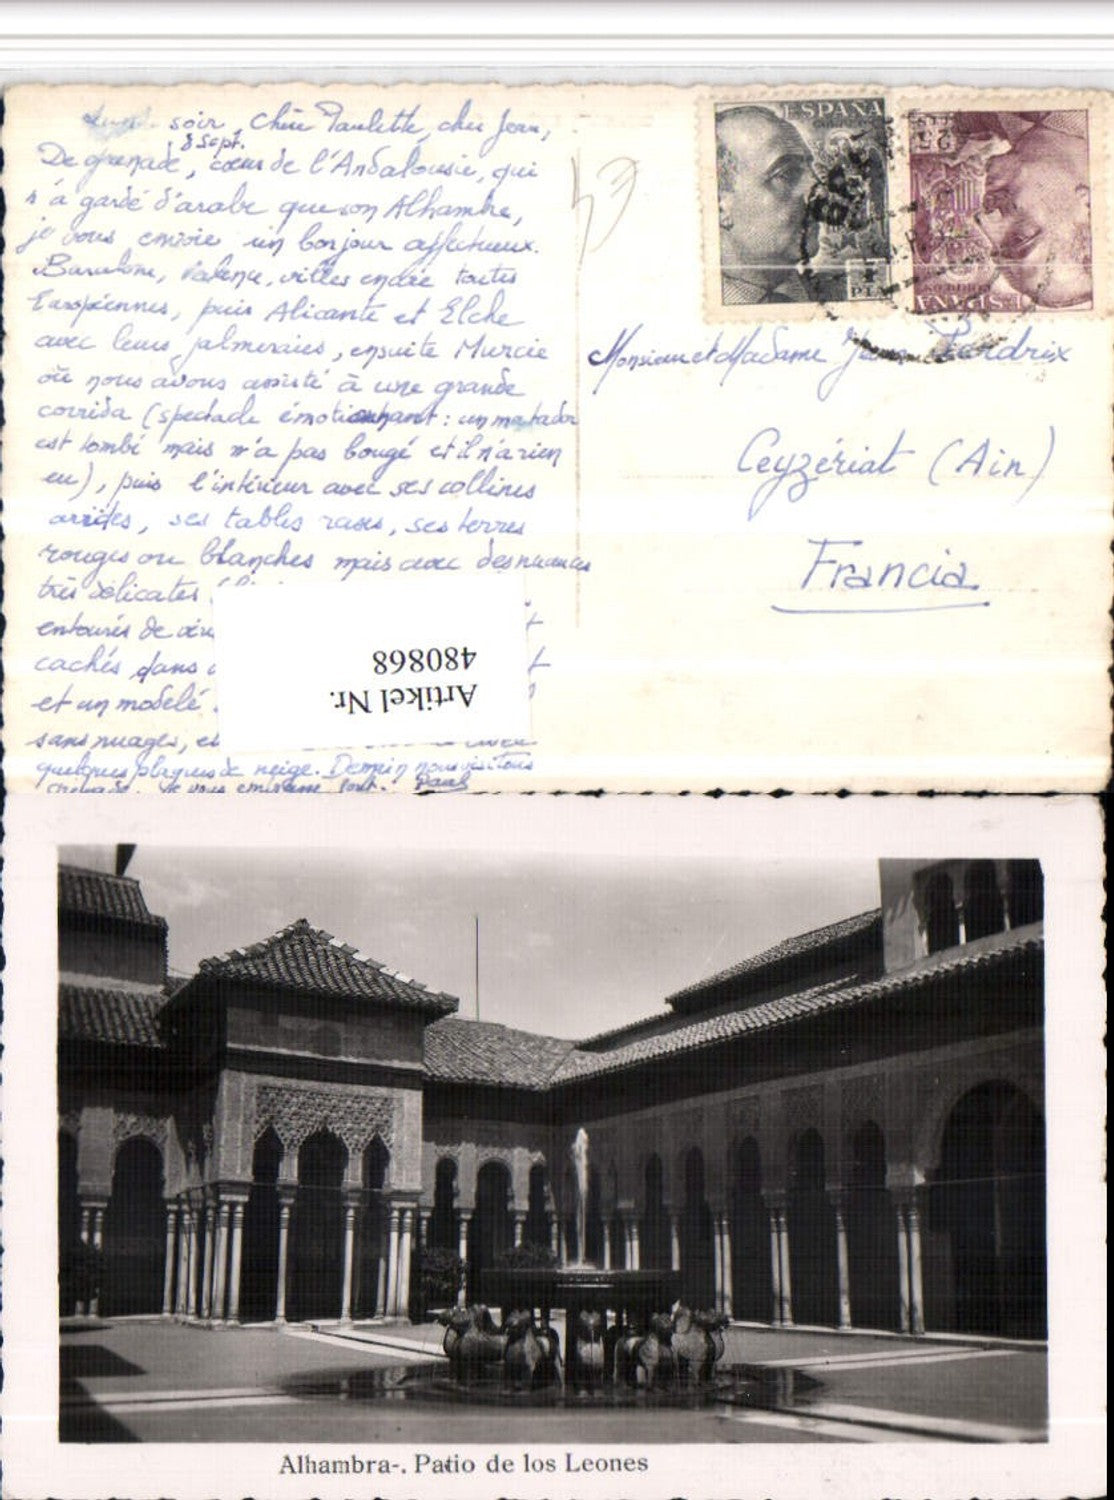 soir, Chère Paulette, cher Jean,
8 Sept.
De grenade, cœur de l'Andalousie, qui
n'a gardé d'arabe que son Alhambra,
je vous envoie un bonjour affectueux.
Barcelone, Valence, villes encore toutes
Européennes, puis Alicante et Elche
avec leurs palmeraies, ensuite Murcie
où nous avons assisté à une grande
corrida (spectacle émotionnant : un matador
est tombé mais n'a pas bougé et il n'a rien
eu), puis l'intérieur avec ses collines
arides, ses tables rases, ses terres
rouges ou blanches mais avec des nuances
très délicates
entourés de
cachés dans
et un modelé
sans nuages,
quelques plaques de neige. Demain nous visitons
Je vous embrasse Paul
ESPAÑA
CORREOS
1
PTA
ESPAÑA
CORREOS
25
CTS
Monsieur et Madame Jean Perdrix
Ceyzériat (Ain)
Francia
Artikel Nr.
480868
Alhambra-. Patio de los Leones